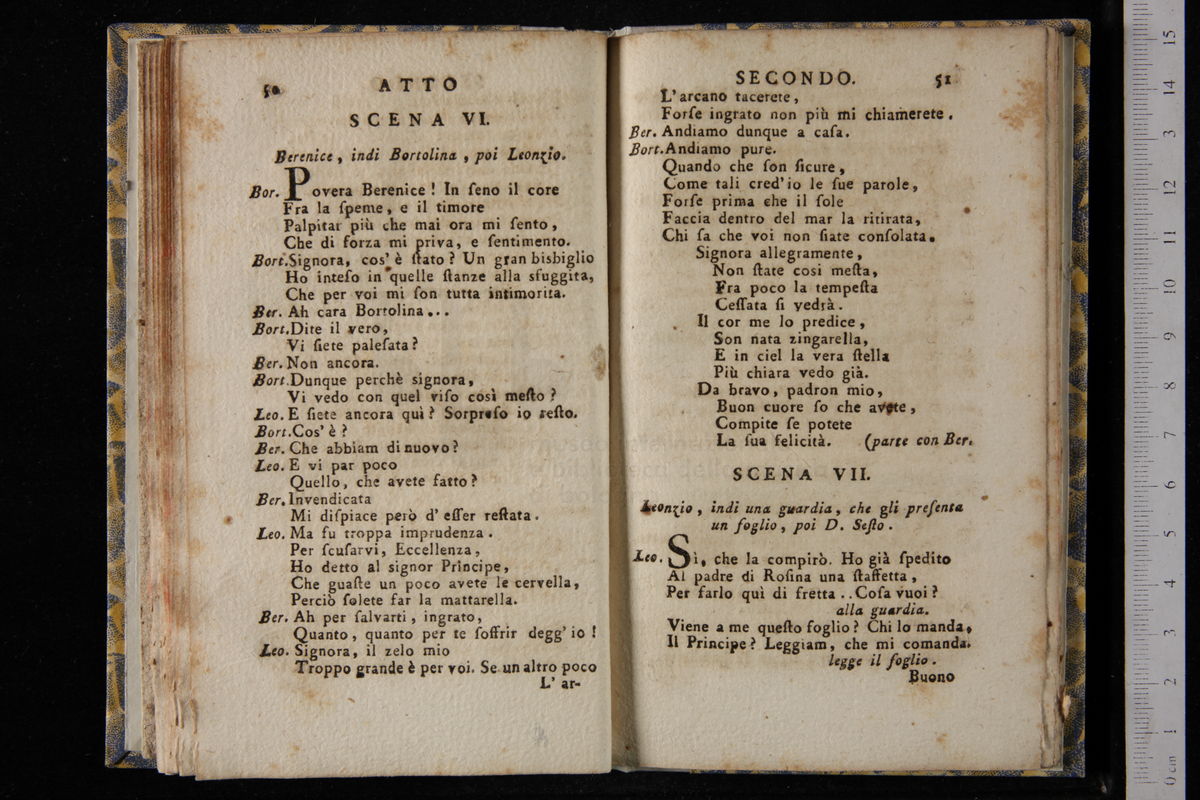 50 ATTO
SCENA VI.
Berenice, indi Bortolina, poi Leonzio.
Bor. Povera Berenice! In ſeno il core
Fra la ſpeme, e il timore
Palpitar più che mai ora mi ſento,
Che di forza mi priva, e ſentimento.
Bort. Signora, cos' è ſtato? Un gran bisbiglio
Ho inteſo in quelle ſtanze alla sfuggita,
Che per voi mi ſon tutta intimorita.
Ber. Ah cara Bortolina...
Bort. Dite il vero,
Vi ſiete paleſata?
Ber. Non ancora.
Bort. Dunque perchè signora,
Vi vedo con quel viſo così meſto?
Leo. E ſiete ancora quì? Sorpreſo io reſto.
Bort. Cos' è?
Ber. Che abbiam di nuovo?
Leo. E vi par poco
Quello, che avete fatto?
Ber. Invendicata
Mi diſpiace però d' eſſer reſtata.
Leo. Ma fu troppa imprudenza.
Per ſcuſarvi, Eccellenza,
Ho detto al signor Principe,
Che guaſte un poco avete le cervella,
Perciò ſolete far la mattarella.
Ber. Ah per ſalvarti, ingrato,
Quanto, quanto per te ſoffrir degg' io!
Leo. Signora, il zelo mio
Troppo grande è per voi. Se un altro poco
L' ar-
SECONDO. 51
L' arcano tacerete,
Forſe ingrato non più mi chiamerete.
Ber. Andiamo dunque a caſa.
Bort. Andiamo pure.
Quando che ſon ſicure,
Come tali cred' io le ſue parole,
Forſe prima che il ſole
Faccia dentro del mar la ritirata,
Chi ſa che voi non ſiate conſolata.
Signora allegramente,
Non ſtate cosi meſta,
Fra poco la tempeſta
Ceſſata ſi vedrà.
Il cor me lo predice,
Son nata zingarella,
E in ciel la vera ſtella
Più chiara vedo già.
Da bravo, padron mio,
Buon cuore ſo che avete,
Compite ſe potete
La ſua felicità. (parte con Ber.
SCENA VII.
Leonzio, indi una guardia, che gli preſenta
un foglio, poi D. Seſto.
Leo. Sì, che la compirò. Ho già ſpedito
Al padre di Roſina una ſtaffetta,
Per farlo quì di fretta .. Coſa vuoi?
alla guardia.
Viene a me queſto foglio? Chi lo manda,
Il Principe? Leggiam, che mi comanda.
legge il foglio.
Buono